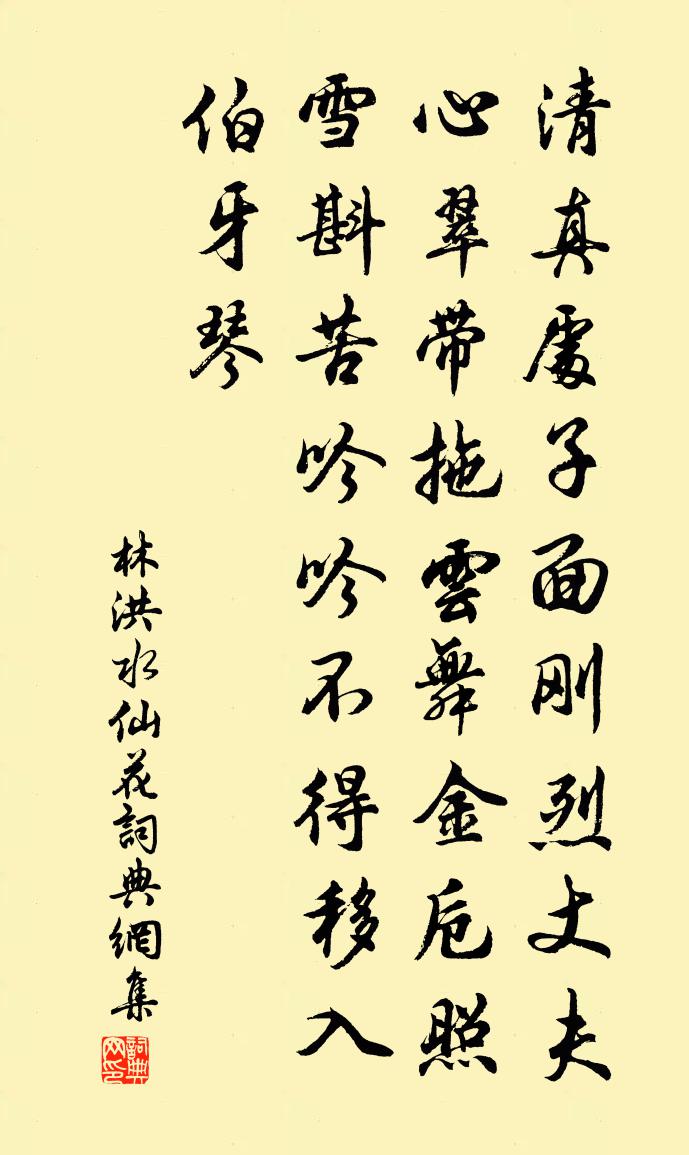 清真處子面刚烈丈夫
心翠带拖雲舞金卮照
雪斟苦吟吟不得移入
伯牙琴
林洪水仙花詞典網集
詞典网印